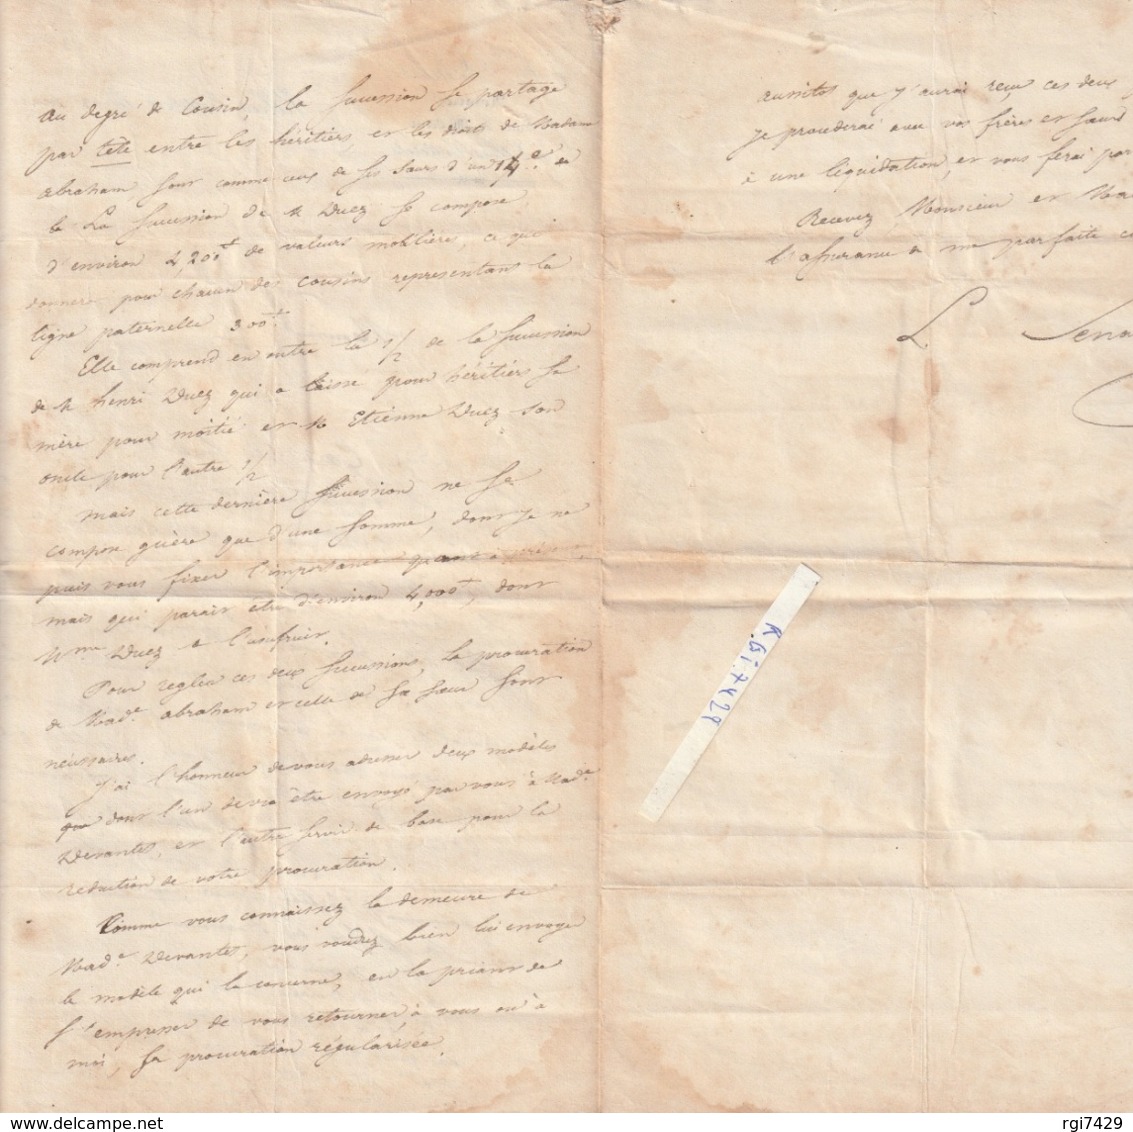 Au degré de Cousin, la succession se partage
par tête entre les héritiers et les droits de Madam
abraham sont comme ceux de ses sœurs d'un 14e. de
La succession de M Duez se compose
d'environ 4,200 de valeurs mobilière, ce qui
donnera pour chacun des cousins representant la
ligne paternelle 300
Elle comprend en outre la 1/2 de la succession
de M henri Duez qui a laissé pour héritiers sa
mère pour moitié et M Etiènne Duez son
oncle pour l'autre 1/2
mais cette dernière succession ne se
compose guère que d'une somme, dont je ne
puis vous fixer l'importance quant à
mais qui parait être d'environ 4,000, dont
Mme Duez a l'usufruit.
Pour regler ces deux successions, la procuration
de Made. abraham et celle de sa sœur sont
nécessaires.
J'ai l'honneur de vous adresser deux modèles
dont l'un devra être envoyé par vous à Made.
Devantes, et l'autre servir de base pour la
redaction de votre procuration.
Comme vous connaissez la demeure de
Made. Devantes, vous voudrez bien lui envoyer
le modèle qui la concerne, en la priant de
s'empresser de vous retourner, à vous ou à
moi, sa procuration régularisée.
aussitot que j'aurai reçu ces deux
je procederai avec vos frères et sœurs
à une liquidation, et vous ferai par
Recevez, Monsieur et Ma
l'assurance de ma parfaite co
L.
RGi7429
rgi7429